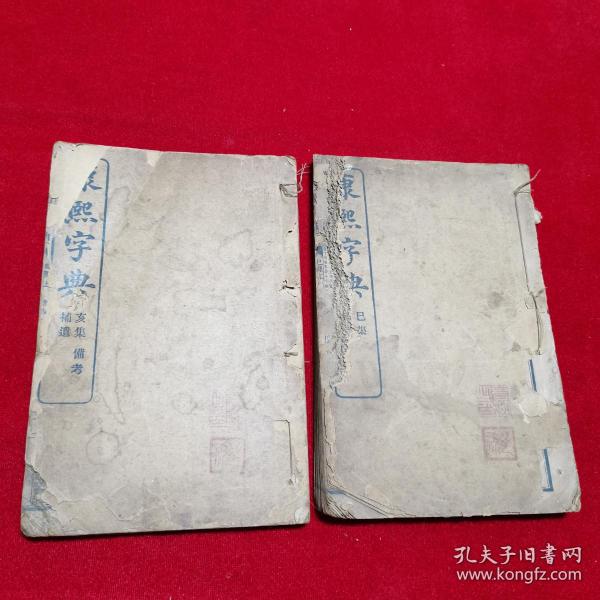 康熙字典
亥集 備考
補遺
康熙字典
巳集
孔夫子旧书网
www.kongfz.com